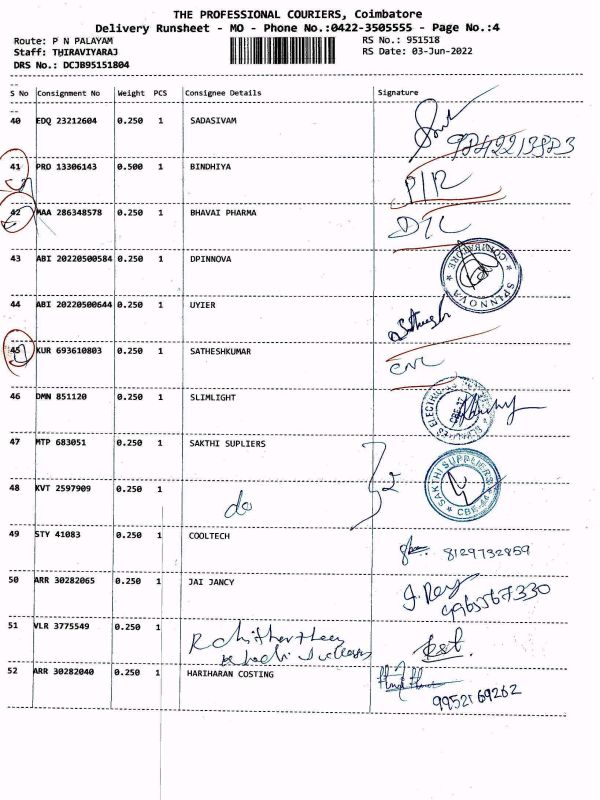 THE PROFESSIONAL COURIERS, Coimbatore
Delivery Runsheet - MO - Phone No.:0422-3505555 - Page No.:4
Route: P N PALAYAM RS No.: 951518
Staff: THIRAVIYARAJ RS Date: 03-Jun-2022
DRS No.: DCJB95151804
S No Consignment No Weight PCS Consignee Details Signature
40 EDQ 23212604 0.250 1 SADASIVAM
41 PRO 13306143 0.500 1 BINDHIYA P/R
42 MAA 286348578 0.250 1 BHAVAI PHARMA DTL
43 ABI 20220500584 0.250 1 DPINNOVA SPINNOVA COIMBATORE
44 ABI 20220500644 0.250 1 UYIER
45 KUR 693610803 0.250 1 SATHESHKUMAR CNL
46 DMN 851120 0.250 1 SLIMLIGHT
47 MTP 683051 0.250 1 SAKTHI SUPLIERS 2 SAKTHI SUPPLIERS CBE-44
48 KVT 2597909 0.250 1 do
49 STY 41083 0.250 1 COOLTECH 8129732859
50 ARR 30282065 0.250 1 JAI JANCY 9965567330
51 VLR 3775549 0.250 1
52 ARR 30282040 0.250 1 HARIHARAN COSTING 9952169262